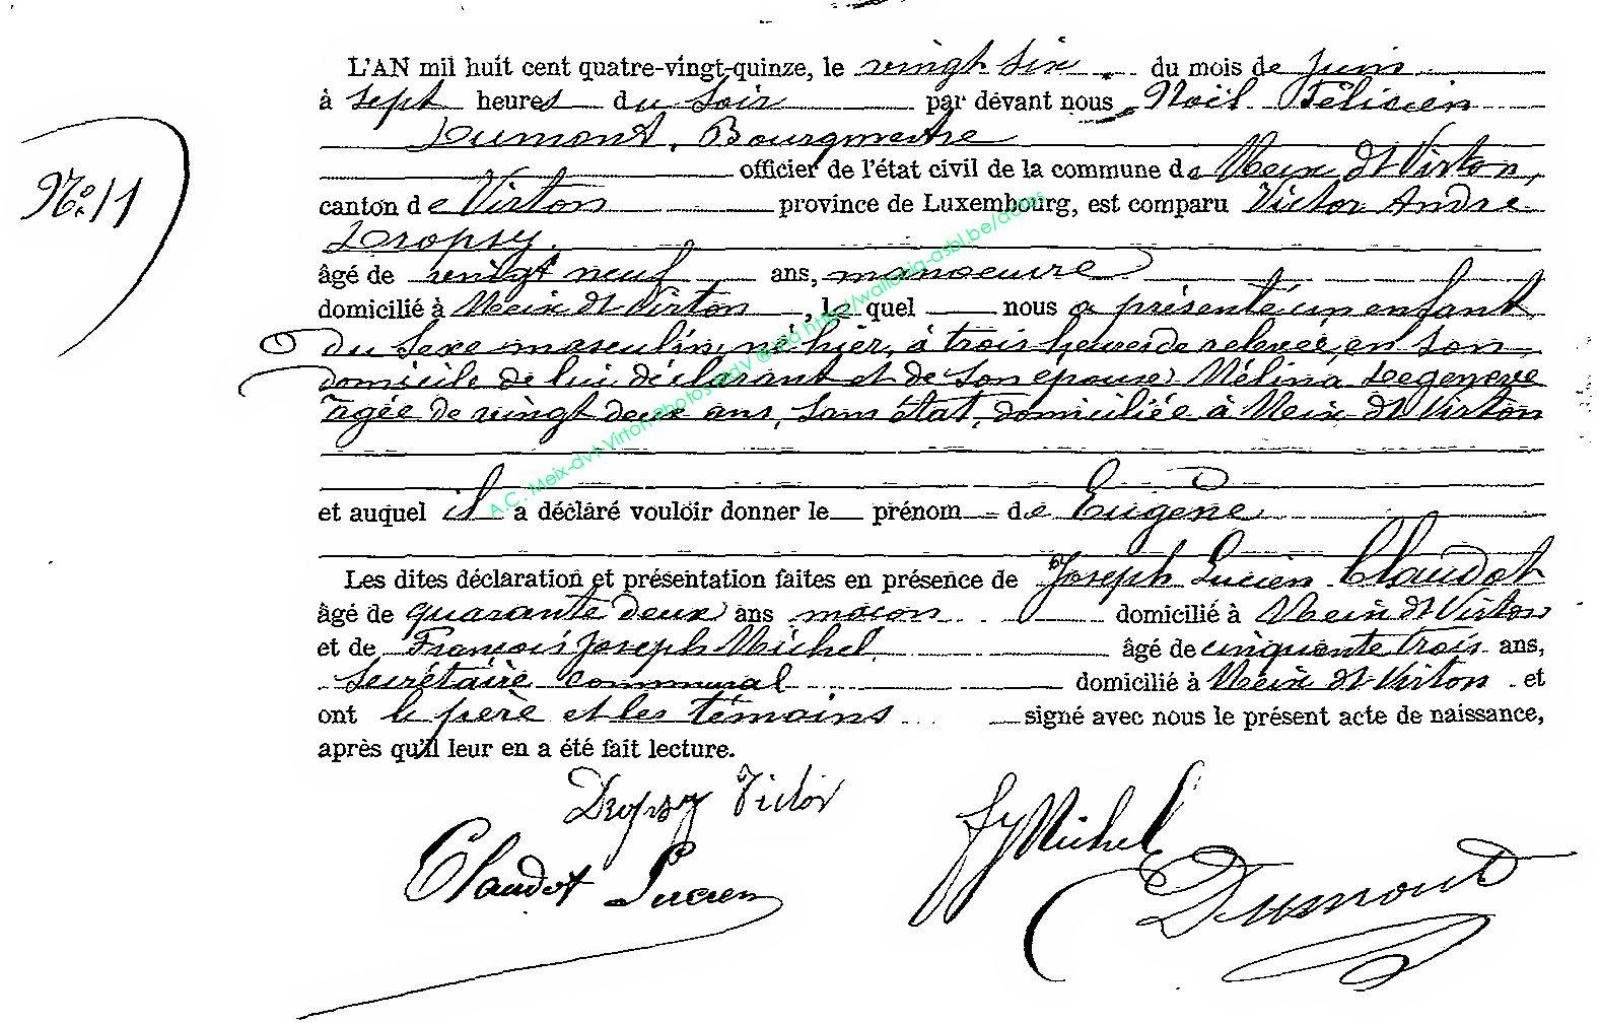 L'AN mil huit cent quatre-vingt-quinze, le vingt six. du mois de juin
à sept heures du soir par devant nous Noël Félicien
Dumont, Bourgmestre
officier de l'état civil de la commune de Meix dt Virton,
N° 11
canton de Virton province de Luxembourg, est comparu Victor André
Dropsy.
âgé de vingt neuf ans, manoeuvre
domicilié à Meix dt Virton, le quel nous a présenté un enfant
du sexe masculin, né hier, à trois heures de relevée, en son
domicile de lui déclarant et de son épouse Mélina Degenève
agée de vingt deux ans, sans état, domiciliée à Meix dt Virton
et auquel il a déclaré vouloir donner le prénom de Eugène
Les dites déclaration et présentation faites en présence de Joseph Lucien Claudot
âgé de quarante deux ans maçon domicilié à Meix dt Virton
et de François Joseph Michel âgé de cinquante trois ans,
Secrétaire communal domicilié à Meix dt Virton et
ont le père et les témoins signé avec nous le présent acte de naissance,
après qu'il leur en a été fait lecture.
Dropsy Victor
Claudot Lucien
fj Michel
Dumont